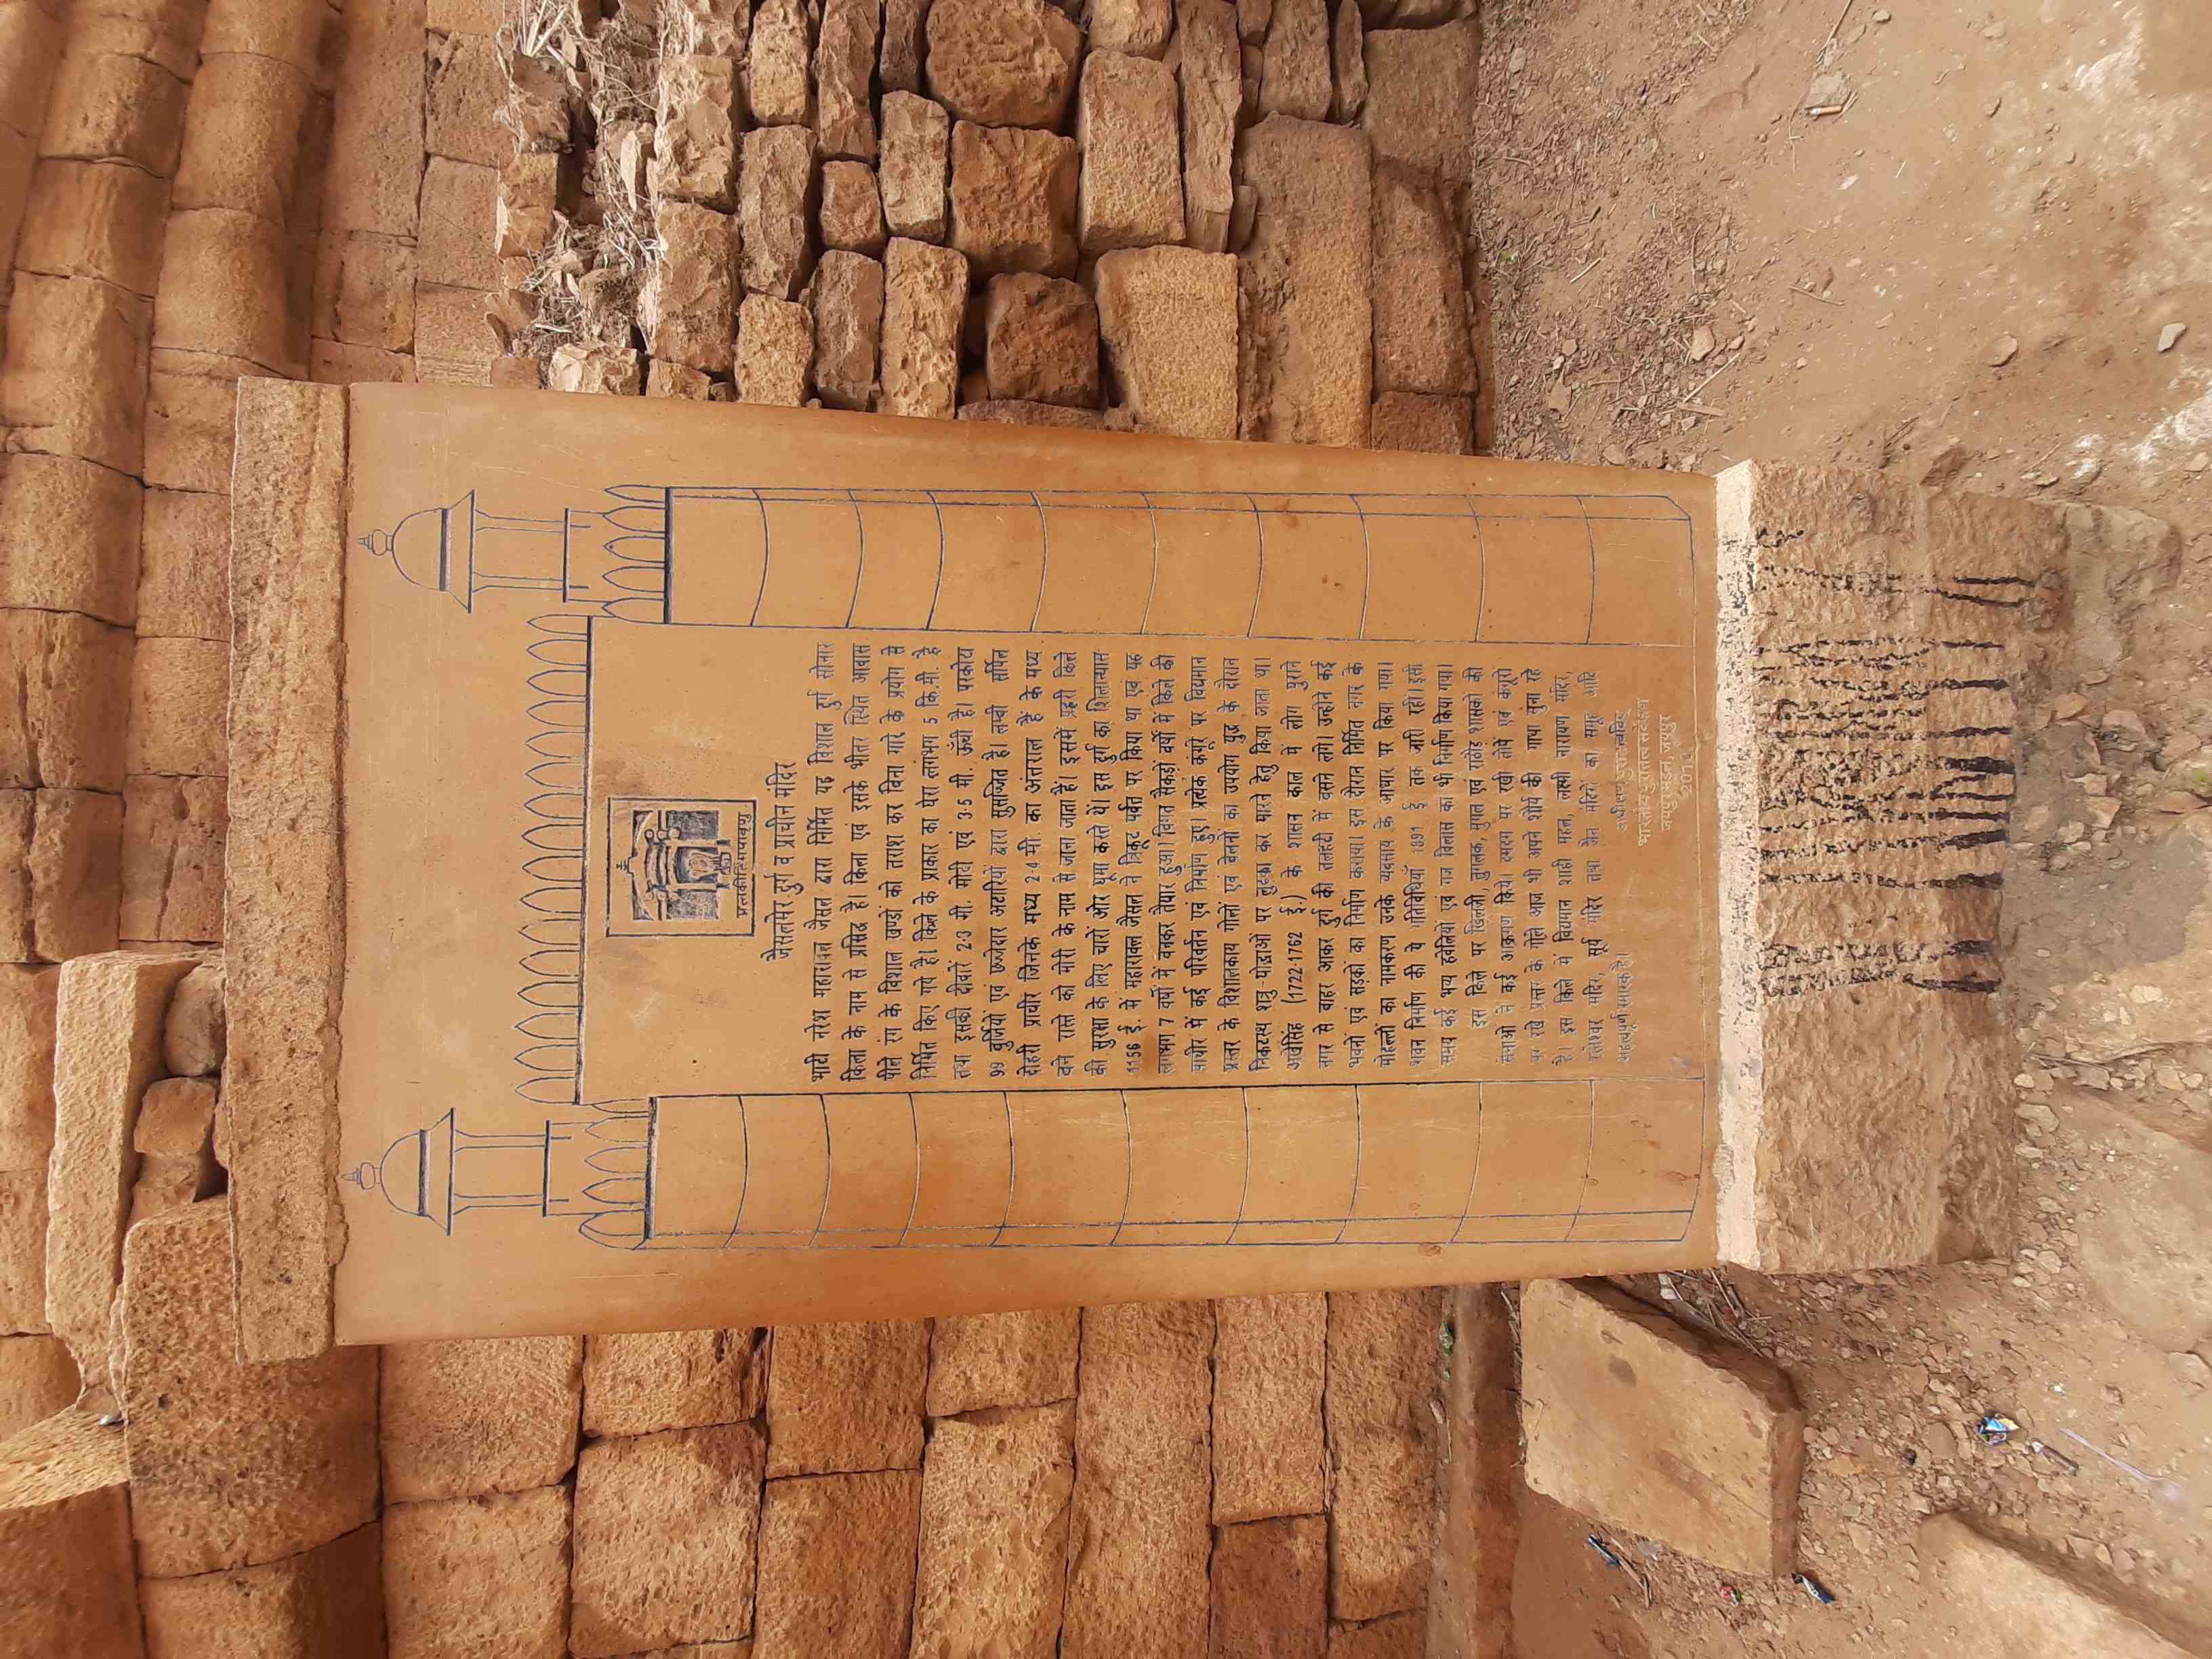 प्रत्नकीर्तिमपावृणु
जैसलमेर दुर्ग व प्राचीन मंदिर
भाटी नरेश महारावल जैसल द्वारा निर्मित यह विशाल दुर्ग सोनार
किला के नाम से प्रसिद्ध है। किला एवं इसके भीतर स्थित आवास
पीले रंग के विशाल खण्डों को तराश कर बिना गारे के प्रयोग से
निर्मित किए गये है। किले के प्राकार का घेरा लगभग 5 कि.मी. है
तथा इसकी दीवारें 2-3 मी. मोटी एवं 3-5 मी. ऊँची है। परकोटा
99 बुर्जियों एवं छज्जेदार अटारियों द्वारा सुसज्जित है। लम्बी सर्पिल
दोहरी प्राचीर जिनके मध्य 2-4 मी. का अंतराल है के मध्य
बने रास्ते को मोरी के नाम से जाना जाता है। इसमें प्रहरी किले
की सुरक्षा के लिए चारों ओर घूमा करते थे। इस दुर्ग का शिलान्यास
1156 ई. में महारावल जैसल ने त्रिकूट पर्वत पर किया था एवं यह
लगभग 7 वर्षों में बनकर तैयार हुआ। विगत सैकड़ों वर्षों में किले की
प्राचीर में कई परिवर्तन एवं निर्माण हुए। प्रत्येक कंगूरे पर विद्यमान
प्रस्तर के विशालकाय गोलों एवं बेलनों का उपयोग युद्ध के दौरान
निकटस्थ शत्रु-योद्धाओं पर लुढ़का कर मारने हेतु किया जाता था।
अखैसिंह (1722-1762 ई.) के शासन काल में लोग पुराने
नगर से बाहर आकर दुर्ग की तलहटी में बसने लगे। उन्होंने कई
भवनों एवं सड़कों का निर्माण कराया। इस दौरान निर्मित नगर के
मोहल्लों का नामकरण उनके व्यवसाय के आधार पर किया गया।
भवन निर्माण की ये गतिविधियाँ 1891 ई तक जारी रही। इसी
समय कई भव्य हवेलियों एवं गज विलास का भी निर्माण किया गया।
इस किले पर खिलजी, तुगलक, मुगल एवं राठौड़ शासकों की
सेनाओं ने कई आक्रमण किये। स्मारक पर रखी तोपें एवं कंगूरों
पर रखे प्रस्तर के गोले आज भी अपने शौर्य की गाथा सुना रहे
है। इस किले में विद्यमान शाही महल, लक्ष्मी नारायण मंदिर,
रत्नेश्वर मंदिर, सूर्य मंदिर तथा जैन मंदिरों का समूह आदि
महत्वपूर्ण स्मारक है।
अधीक्षण पुरातत्वविद्
भारतीय पुरातत्व सर्वेक्षण
जयपुर मंडल, जयपुर